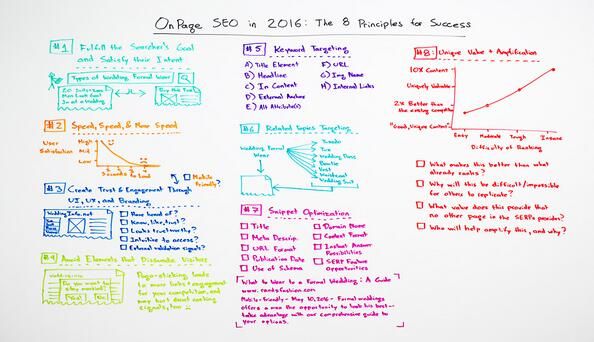 OnPage SEO in 2016: The 8 Principles for Success
#1 Fulfill the Searcher's Goal
and Satisfy their Intent
Types of Wedding Formal Wear
#2 Speed, Speed, & More Speed
User
Satisfaction
High
Mid
Low
Seconds to Load
Mobile
Friendly?
#3 Create Trust & Engagement Through
UI, UX, and Branding
WeddingInfo.net
Ever heard of?
Know, like, trust?
Looks trustworthy?
Intuitive to access?
External validation signals?
#4 Avoid Elements that Dissuade Visitors
Do you want to
stay married?
Yes!
No!
Pogo-sticking, leads
to more links & engagement
for your competitor, and
may hurt direct ranking
signals, too
#5 Keyword Targeting
A) Title Element
B) Headline
C) In Content
D) External Anchor
E) Alt Attribute(s)
F) URL
G) Img Name
H) Internal Links
#6 Related Topics Targeting
Wedding Formal
Wear
Tuxedo
Tux
Wedding Dress
Bowtie
Vest
Waistcoat
Wedding Suit
#7 Snippet Optimization
Title
Meta Descrip.
URL Format
Publication Date
Use of Schema
Domain Name
Content Format
Instant Answer
Possibilities
SERP Feature
Opportunities
What to Wear to a Formal Wedding: A Guide
www.randsfashion.com
Mobile-friendly - May 10, 2016 - Formal weddings
offers a man the opportunity to look his best -
take advantage with our comprehensive guide to
your options.
#8: Unique Value + Amplification
10X Content
Uniquely Valuable
2X Better than
the existing competitor
"Good, Unique Content"
Easy
Moderate
Tough
Insane
Difficulty of Ranking
What makes this better than what
already ranks?
Why will this be difficult/impossible
for others to replicate?
What value does this provide that
no other page in the SERPs provides?
Who will help amplify this, and why?